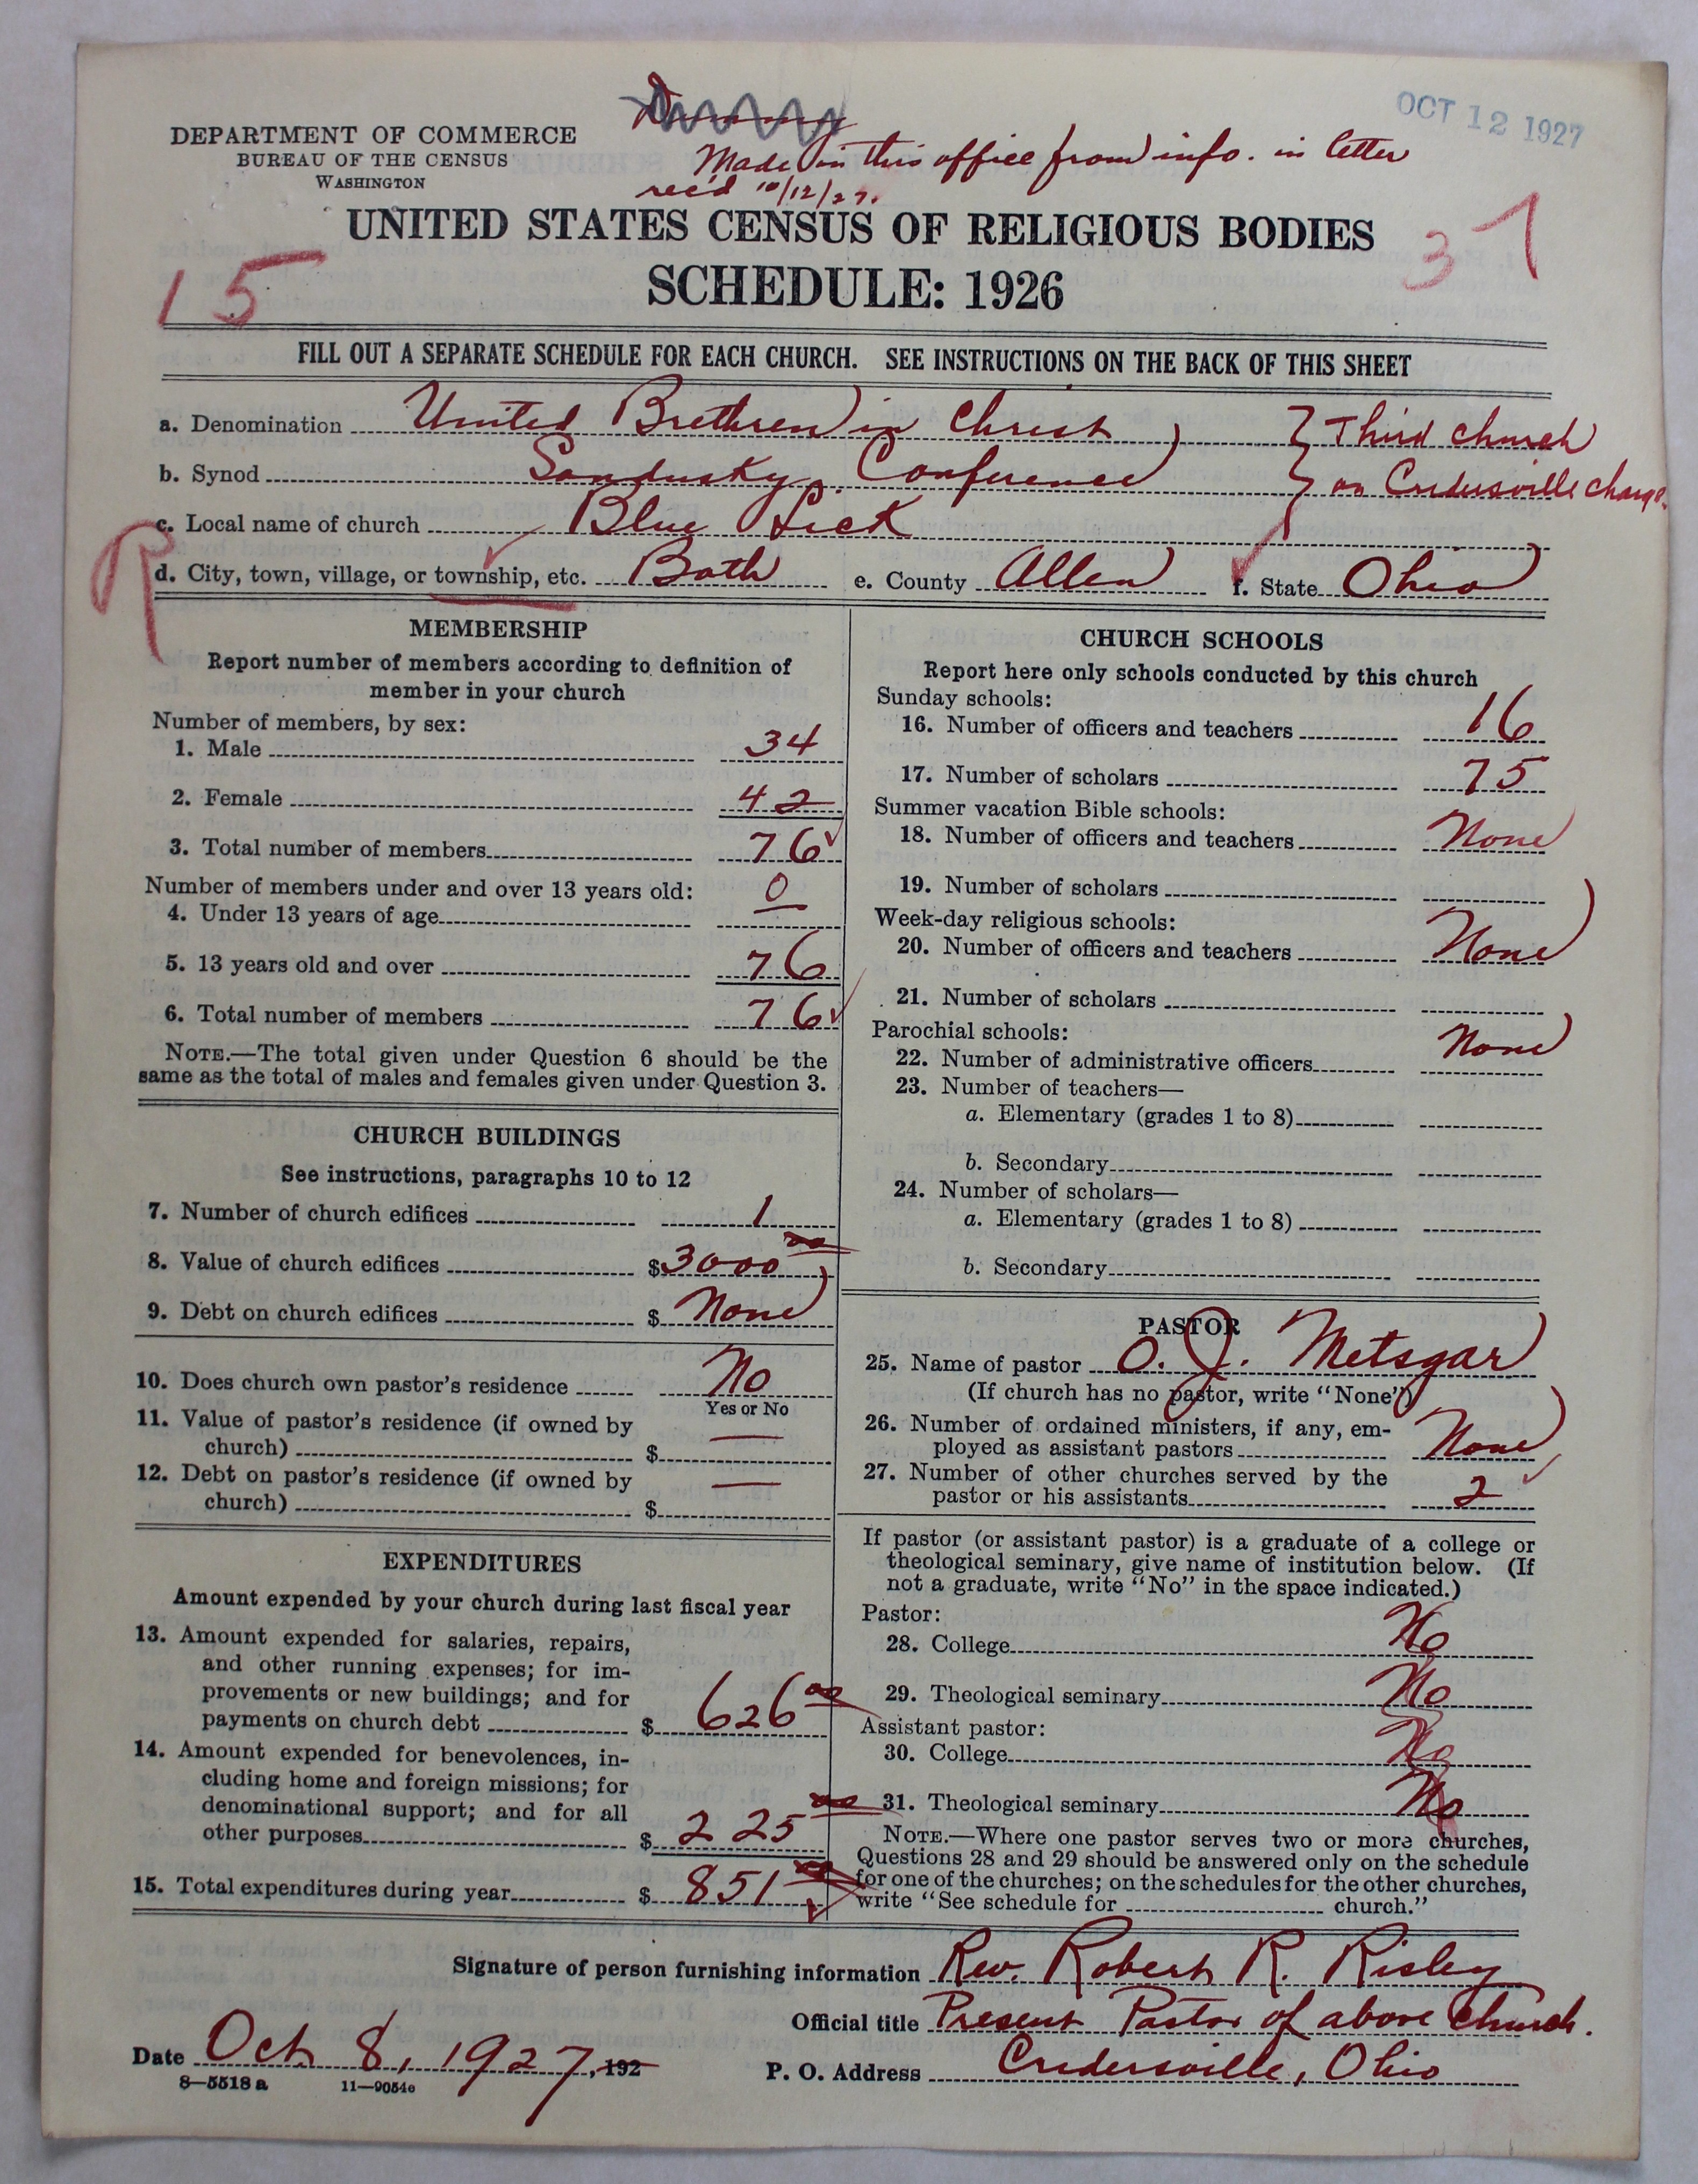 OCT 12 1927
DEPARTMENT OF COMMERCE
BUREAU OF THE CENSUS
WASHINGTON
Made in this office from info. in letter
rec'd 10/12/27.
UNITED STATES CENSUS OF RELIGIOUS BODIES
SCHEDULE: 1926
15
37
FILL OUT A SEPARATE SCHEDULE FOR EACH CHURCH. SEE INSTRUCTIONS ON THE BACK OF THIS SHEET
a. Denomination United Brethren in Christ } Third church
b. Synod Sandusky Conference } on Cridersville charge.
c. Local name of church Blue Lick
R
d. City, town, village, or township, etc. Bath e. County Allen f. State Ohio
MEMBERSHIP
Report number of members according to definition of
member in your church
Number of members, by sex:
1. Male 34
2. Female 42
3. Total number of members 76
Number of members under and over 13 years old:
4. Under 13 years of age 0
5. 13 years old and over 76
6. Total number of members 76
NOTE.—The total given under Question 6 should be the
same as the total of males and females given under Question 3.
CHURCH BUILDINGS
See instructions, paragraphs 10 to 12
7. Number of church edifices 1
8. Value of church edifices $3000 00
9. Debt on church edifices $ None
10. Does church own pastor's residence No
Yes or No
11. Value of pastor's residence (if owned by
church) $ —
12. Debt on pastor's residence (if owned by
church) $ —
EXPENDITURES
Amount expended by your church during last fiscal year
13. Amount expended for salaries, repairs,
and other running expenses; for im-
provements or new buildings; and for
payments on church debt $ 626 00
14. Amount expended for benevolences, in-
cluding home and foreign missions; for
denominational support; and for all
other purposes $ 225 00
15. Total expenditures during year $ 851 00
CHURCH SCHOOLS
Report here only schools conducted by this church
Sunday schools:
16. Number of officers and teachers 16
17. Number of scholars 75
Summer vacation Bible schools:
18. Number of officers and teachers None
19. Number of scholars
Week-day religious schools:
20. Number of officers and teachers None
21. Number of scholars
Parochial schools:
22. Number of administrative officers None
23. Number of teachers—
a. Elementary (grades 1 to 8)
b. Secondary
24. Number of scholars—
a. Elementary (grades 1 to 8)
b. Secondary
PASTOR
25. Name of pastor O. J. Metsgar
(If church has no pastor, write "None")
26. Number of ordained ministers, if any, em-
ployed as assistant pastors None
27. Number of other churches served by the
pastor or his assistants 2
If pastor (or assistant pastor) is a graduate of a college or
theological seminary, give name of institution below. (If
not a graduate, write "No" in the space indicated.)
Pastor:
28. College No
29. Theological seminary No
Assistant pastor:
30. College No
31. Theological seminary No
NOTE.—Where one pastor serves two or more churches,
Questions 28 and 29 should be answered only on the schedule
for one of the churches; on the schedules for the other churches,
write "See schedule for church."
Signature of person furnishing information Rev. Robert R. Risley
Official title Present Pastor of above Church.
Date Oct 8, 1927, 192
P. O. Address Cridersville, Ohio
8—5518 a 11—9054c